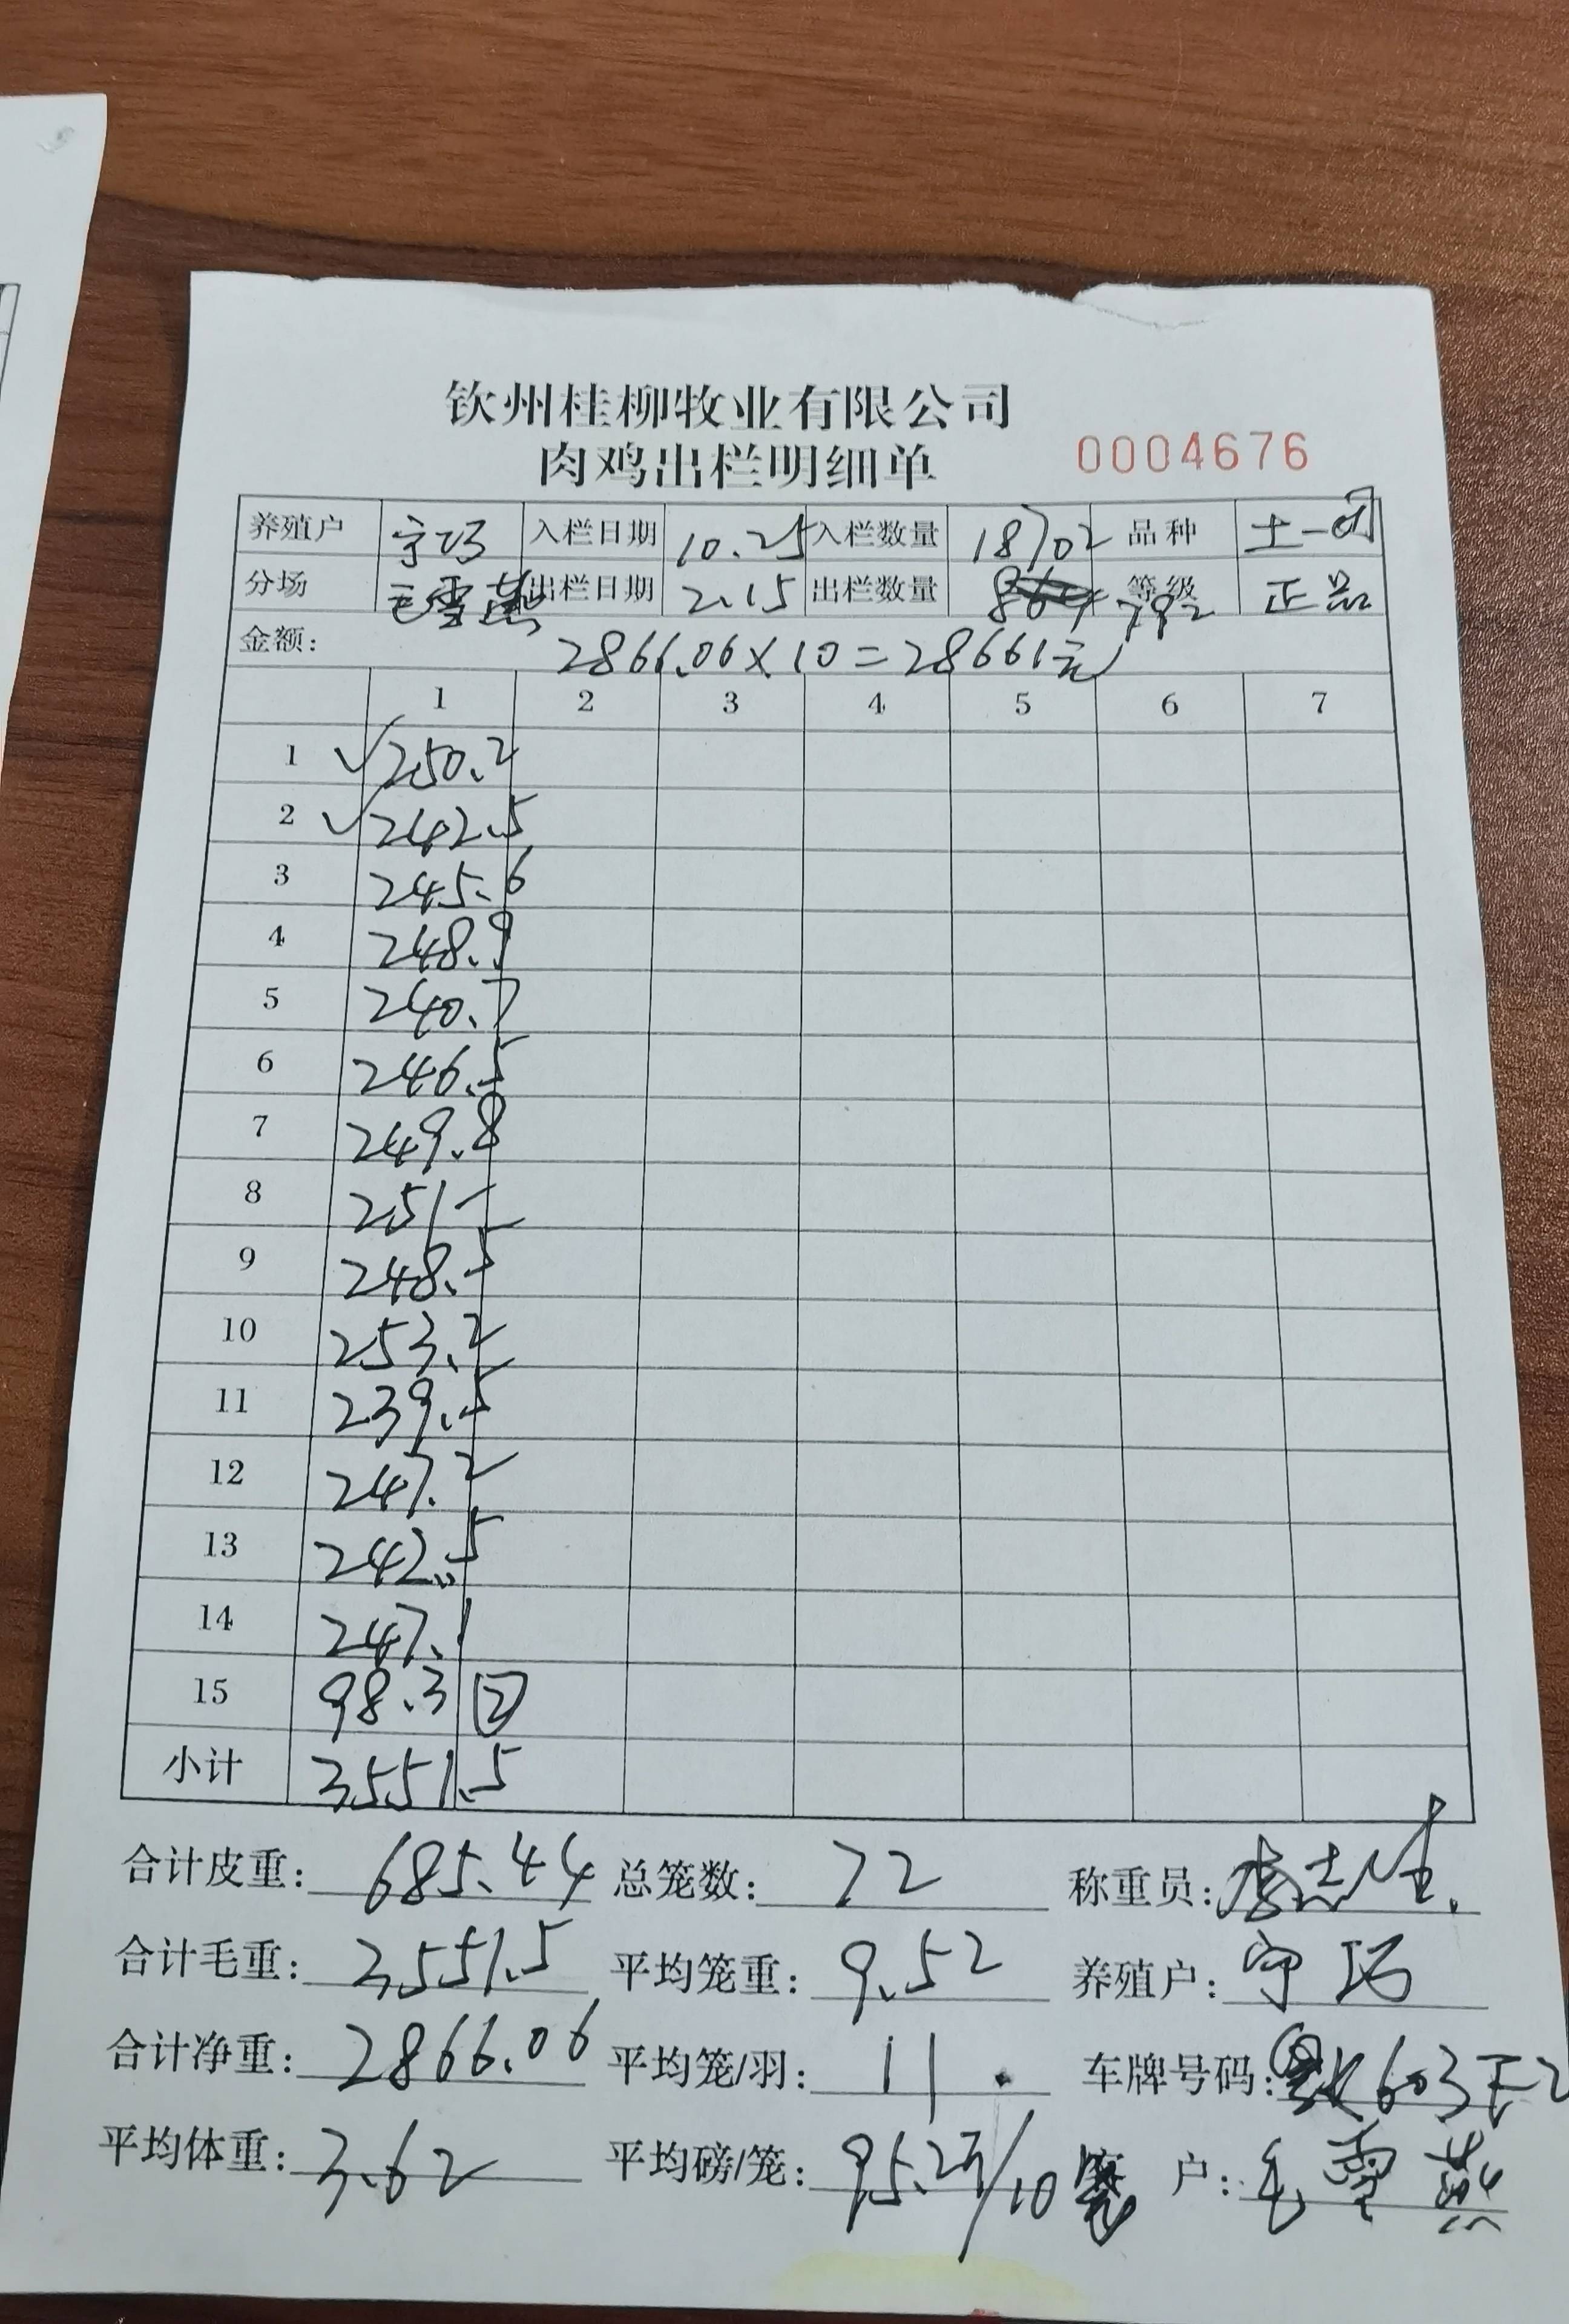 钦州桂柳牧业有限公司
肉鸡出栏明细单 0004676
养殖户 宇巧 入栏日期 10.25 入栏数量 18702 品种 土一
分场 毛雪燕 出栏日期 2.15 出栏数量 792 等级 正品
金额: 2866.06×10=28661元
1 2 3 4 5 6 7
1 250.2
2 242.5
3 245.6
4 248.9
5 240.7
6 246.5
7 249.8
8 251
9 248.5
10 253.2
11 239.5
12 247.2
13 242.5
14 247.1
15 98.3 ②
小计 3551.5
合计皮重: 685.44 总笼数: 72 称重员:
合计毛重: 3551.5 平均笼重: 9.52 养殖户: 宇巧
合计净重: 2866.06 平均笼/羽: 11. 车牌号码: K603F2
平均体重: 3.62 平均磅/笼: 95.2斤/10 户: 毛雪燕